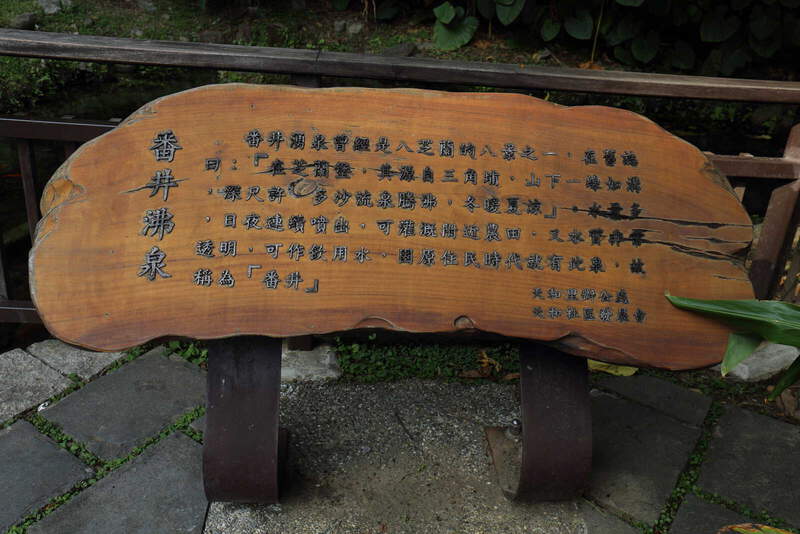 番井沸泉
番井湧泉曾經是八芝蘭的八景之一，在舊誌
曰：「在芝蘭，其源自三角埔，山下一條如溝
，深尺許，多沙流泉騰沸，冬暖夏涼」，水量多
，日夜連續噴出，可灌溉附近農田，又水質非常
透明，可作飲用水，因原住民時代就有此泉，故
稱為「番井」
天和里辦公處
天和社區發展會